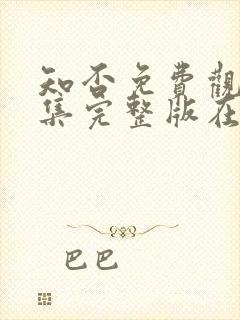 知否免費觀
集完整版在
巴巴